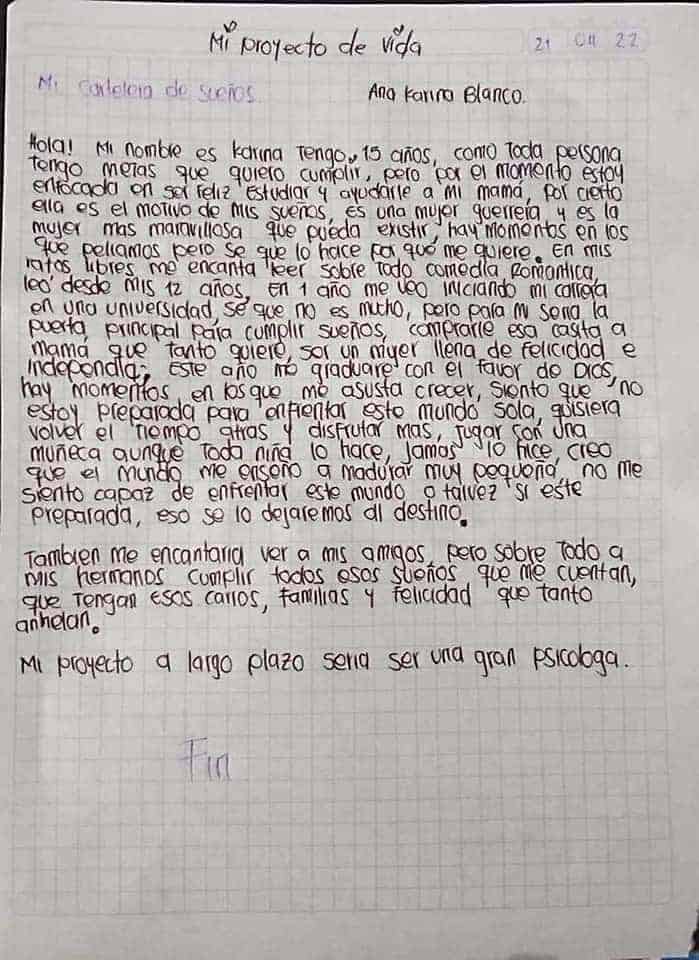 Mi proyecto de vida
21 04 22
Mi cartelera de sueños.
Ana Karina Blanco.
Hola! Mi nombre es Karina Tengo, 15 años, como toda persona
Tengo metas que quiero cumplir, pero por el momento estoy
enfocada en ser feliz estudiar y ayudarle a mi mamá, por cierto
ella es el motivo de mis sueños, es una mujer guerrera y es la
mujer mas maravillosa que pueda existir, hay momentos en los
que peliamos pero se que lo hace por qué me quiere. En mis
ratos libres me encanta leer sobre todo comedia Romantica,
leo desde mis 12 años, En 1 año me veo iniciando mi carrera
en una universidad, se que no es mucho, pero para mi seria la
puerta principal para cumplir sueños, comprarle esa casita a
mamá que tanto quiere, ser un mujer llena de felicidad e
independia; Este año me graduare con el favor de Dios,
hay momentos en los que me asusta crecer, siento que no
estoy preparada para enfrentar este mundo sola, quisiera
volver el tiempo atras y disfrutar mas, jugar con una
muñeca aunque toda niña lo hace, Jamas lo hice, creo
que el mundo me enseño a madurar muy pequeña, no me
siento capaz de enfrentar este mundo o talvez si este
preparada, eso se lo dejaremos al destino.
Tambien me encantaria ver a mis amigos, pero sobre todo a
mis hermanos cumplir todos esos sueños que me cuentan,
que tengan esos carros, familias y felicidad que tanto
anhelan.
Mi proyecto a largo plazo seria ser una gran psicologa.
Fin